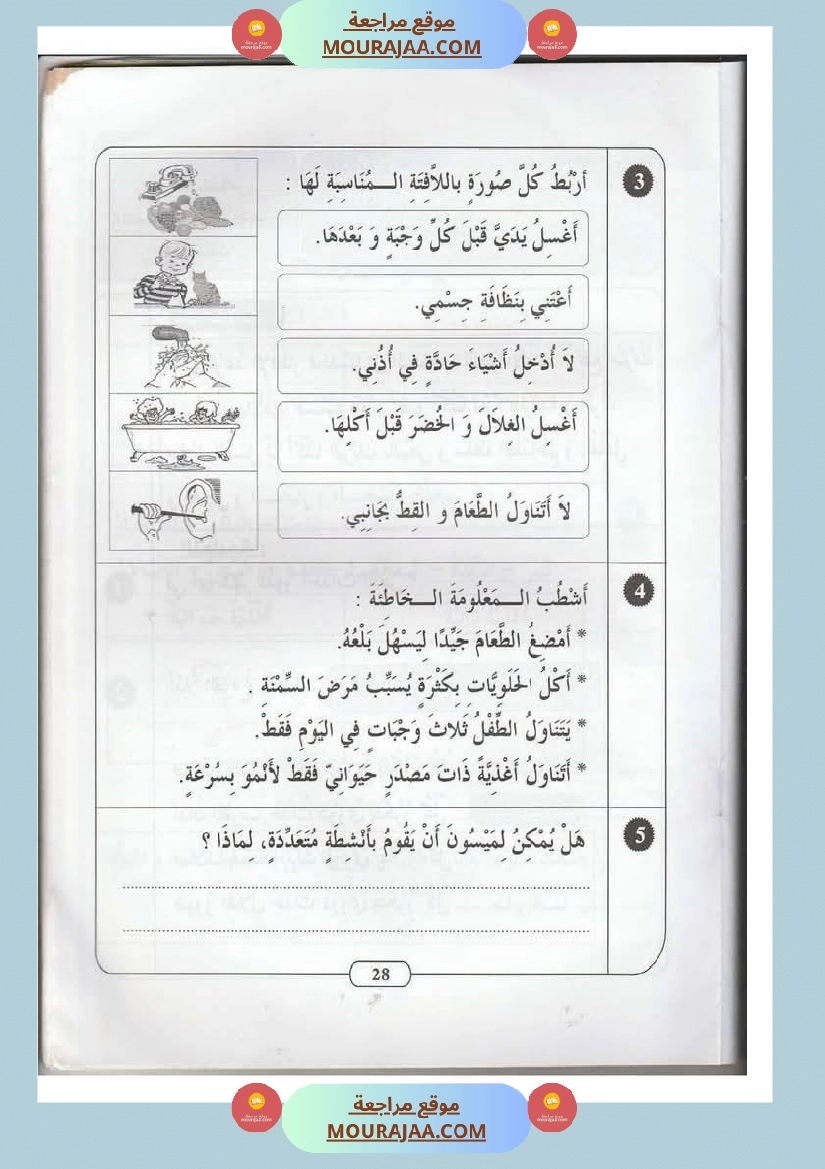 موقع مراجعة
MOURAJAA.COM
3
أرْبُطُ كُلَّ صُورَةٍ باللاَّفِتَةِ الـــمُنَاسِبَةِ لَهَا :
أَغْسِلُ يَدَيَّ قَبْلَ كُلِّ وَجْبَةٍ وَ بَعْدَهَا.
أَعْتَنِي بِنَظَافَةِ جِسْمِي.
لاَ أُدْخِلُ أَشْيَاءَ حَادَّةٍ فِي أُذُنِي.
أَغْسِلُ الغِلاَلَ وَ الخُضَرَ قَبْلَ أَكْلِهَا.
لاَ أَتَنَاوَلُ الطَّعَامَ و القِطُّ بجَانِبِي.
4
أَشْطُبُ الـــمَعْلُومَةَ الـــخَاطِئَةَ :
* أَمْضِغُ الطَّعَامَ جَيِّدًا لِيَسْهُلَ بَلْعُهُ.
* أَكْلُ الحَلَوِيَّاتِ بِكَثْرَةٍ يُسَبِّبُ مَرَضَ السِّمْنَةِ .
* يَتَنَاوَلُ الطِّفْلُ ثَلاثَ وَجْبَاتٍ فِي اليَوْمِ فَقَطْ.
* أَتَنَاوَلُ أَغْذِيَّةً ذَاتَ مَصْدَرٍ حَيَوَانِيّ فَقَطْ لأَنْمُوَ بِسُرْعَةٍ.
5
هَلْ يُمْكِنُ لِمَيْسُونَ أَنْ يَقُومُ بأَنْشِطَةٍ مُتَعَدِّدَةٍ، لِمَاذَا ؟
28
موقع مراجعة
MOURAJAA.COM